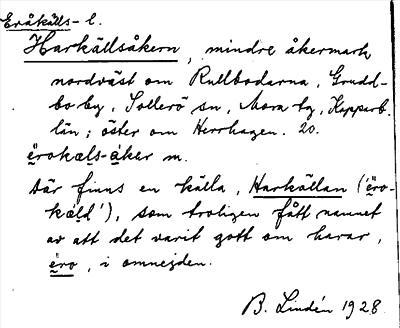 Eråkälls- l.
Harkällsåkern, mindre åkermark
nordväst om Rullbodarna, Grudd-
bo by, Sollerö sn, Mora tg, Kopparb.
län; öster om Herrhagen. 20.
ẹ̈rokæls-åker m.
Där finns en källa, Harkällan ('ẹ̈ro-
kæld'), som troligen fått namnet
av att det varit gott om harar,
ẹ̈ro, i omnejden.
B. Lindén 1928.